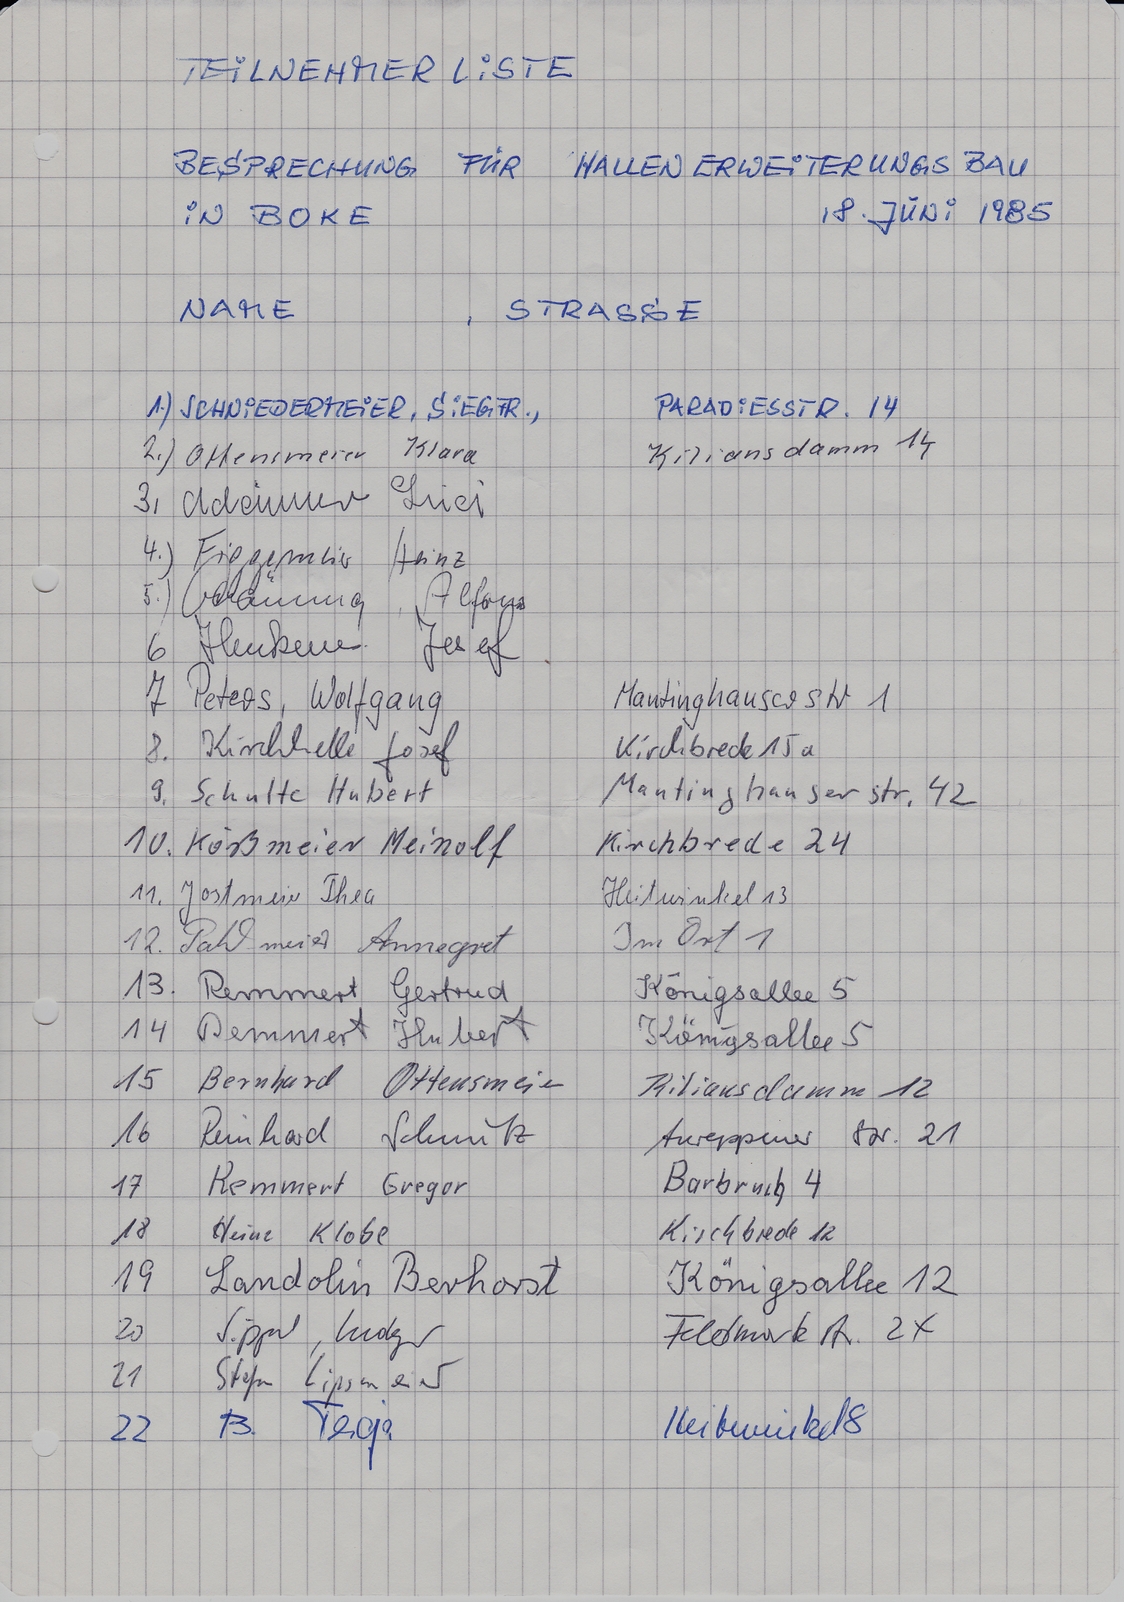 TEILNEHMERLISTE
BESPRECHUNG FÜR HALLENERWEITERUNGSBAU
IN BOKE 18. JUNI 1985
NAME , STRASSE
1.) SCHNIEDERMEIER, SIEGFR., PARADIESSTR. 14
2.) Ottensmeier Klara Kiliansdamm 14
3,
4.) Heinz
5.) Alfons
6 Josef
7 Peters, Wolfgang Mantinghauser Str 1
8. Josef Kirchbrede 15a
9. Schulte Hubert Mantinghauser str. 42
10. Körßmeier Meinolf Kirchbrede 24
11. Jostmeier Thea Heitwinkel 13
12. Pahlmeier Annegret Im Ort 1
13. Remmert Gertrud Königsallee 5
14 Remmert Hubert Königsallee 5
15 Bernhard Ottensmeier Kiliansdamm 12
16 Reinhard Schmitz Anreppener Str. 21
17 Remmert Gregor Barbruch 4
18 Heinz Klobe Kirchbrede 12
19 Landolin Berhorst Königsallee 12
20 Sippel, Ludger Feldmark str.
21 Stefan Lipsmeier
22 B. Heitwinkel 8